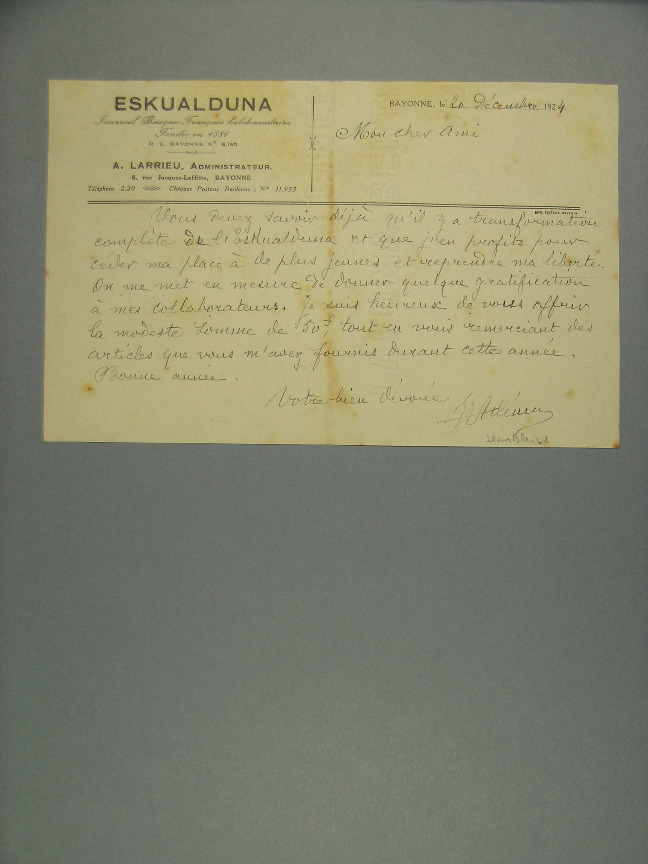 ESKUALDUNA
Journal Basque-Français hebdomadaire
Fondé en 1886
R. C. BAYONNE N° 8.190
A. LARRIEU, ADMINISTRATEUR.
8, rue Jacques-Laffitte, BAYONNE
Téléphone 2.20 Chèques Postaux Bordeaux : N° 11.953
BAYONNE, le 20 Décembre 1924
Mon cher Ami
Vous devez savoir déjà qu'il y a transformation
complète de l'Eskualduna et que j'en profite pour
céder ma place à de plus jeunes et reprendre ma liberté.
On me met en mesure de donner quelque gratification
à mes collaborateurs. Je suis heureux de vous offrir
la modeste somme de 50f, tout en vous remerciant des
articles que vous m'avez fournis durant cette année.
Bonne année.
Votre bien dévoué
Adéma